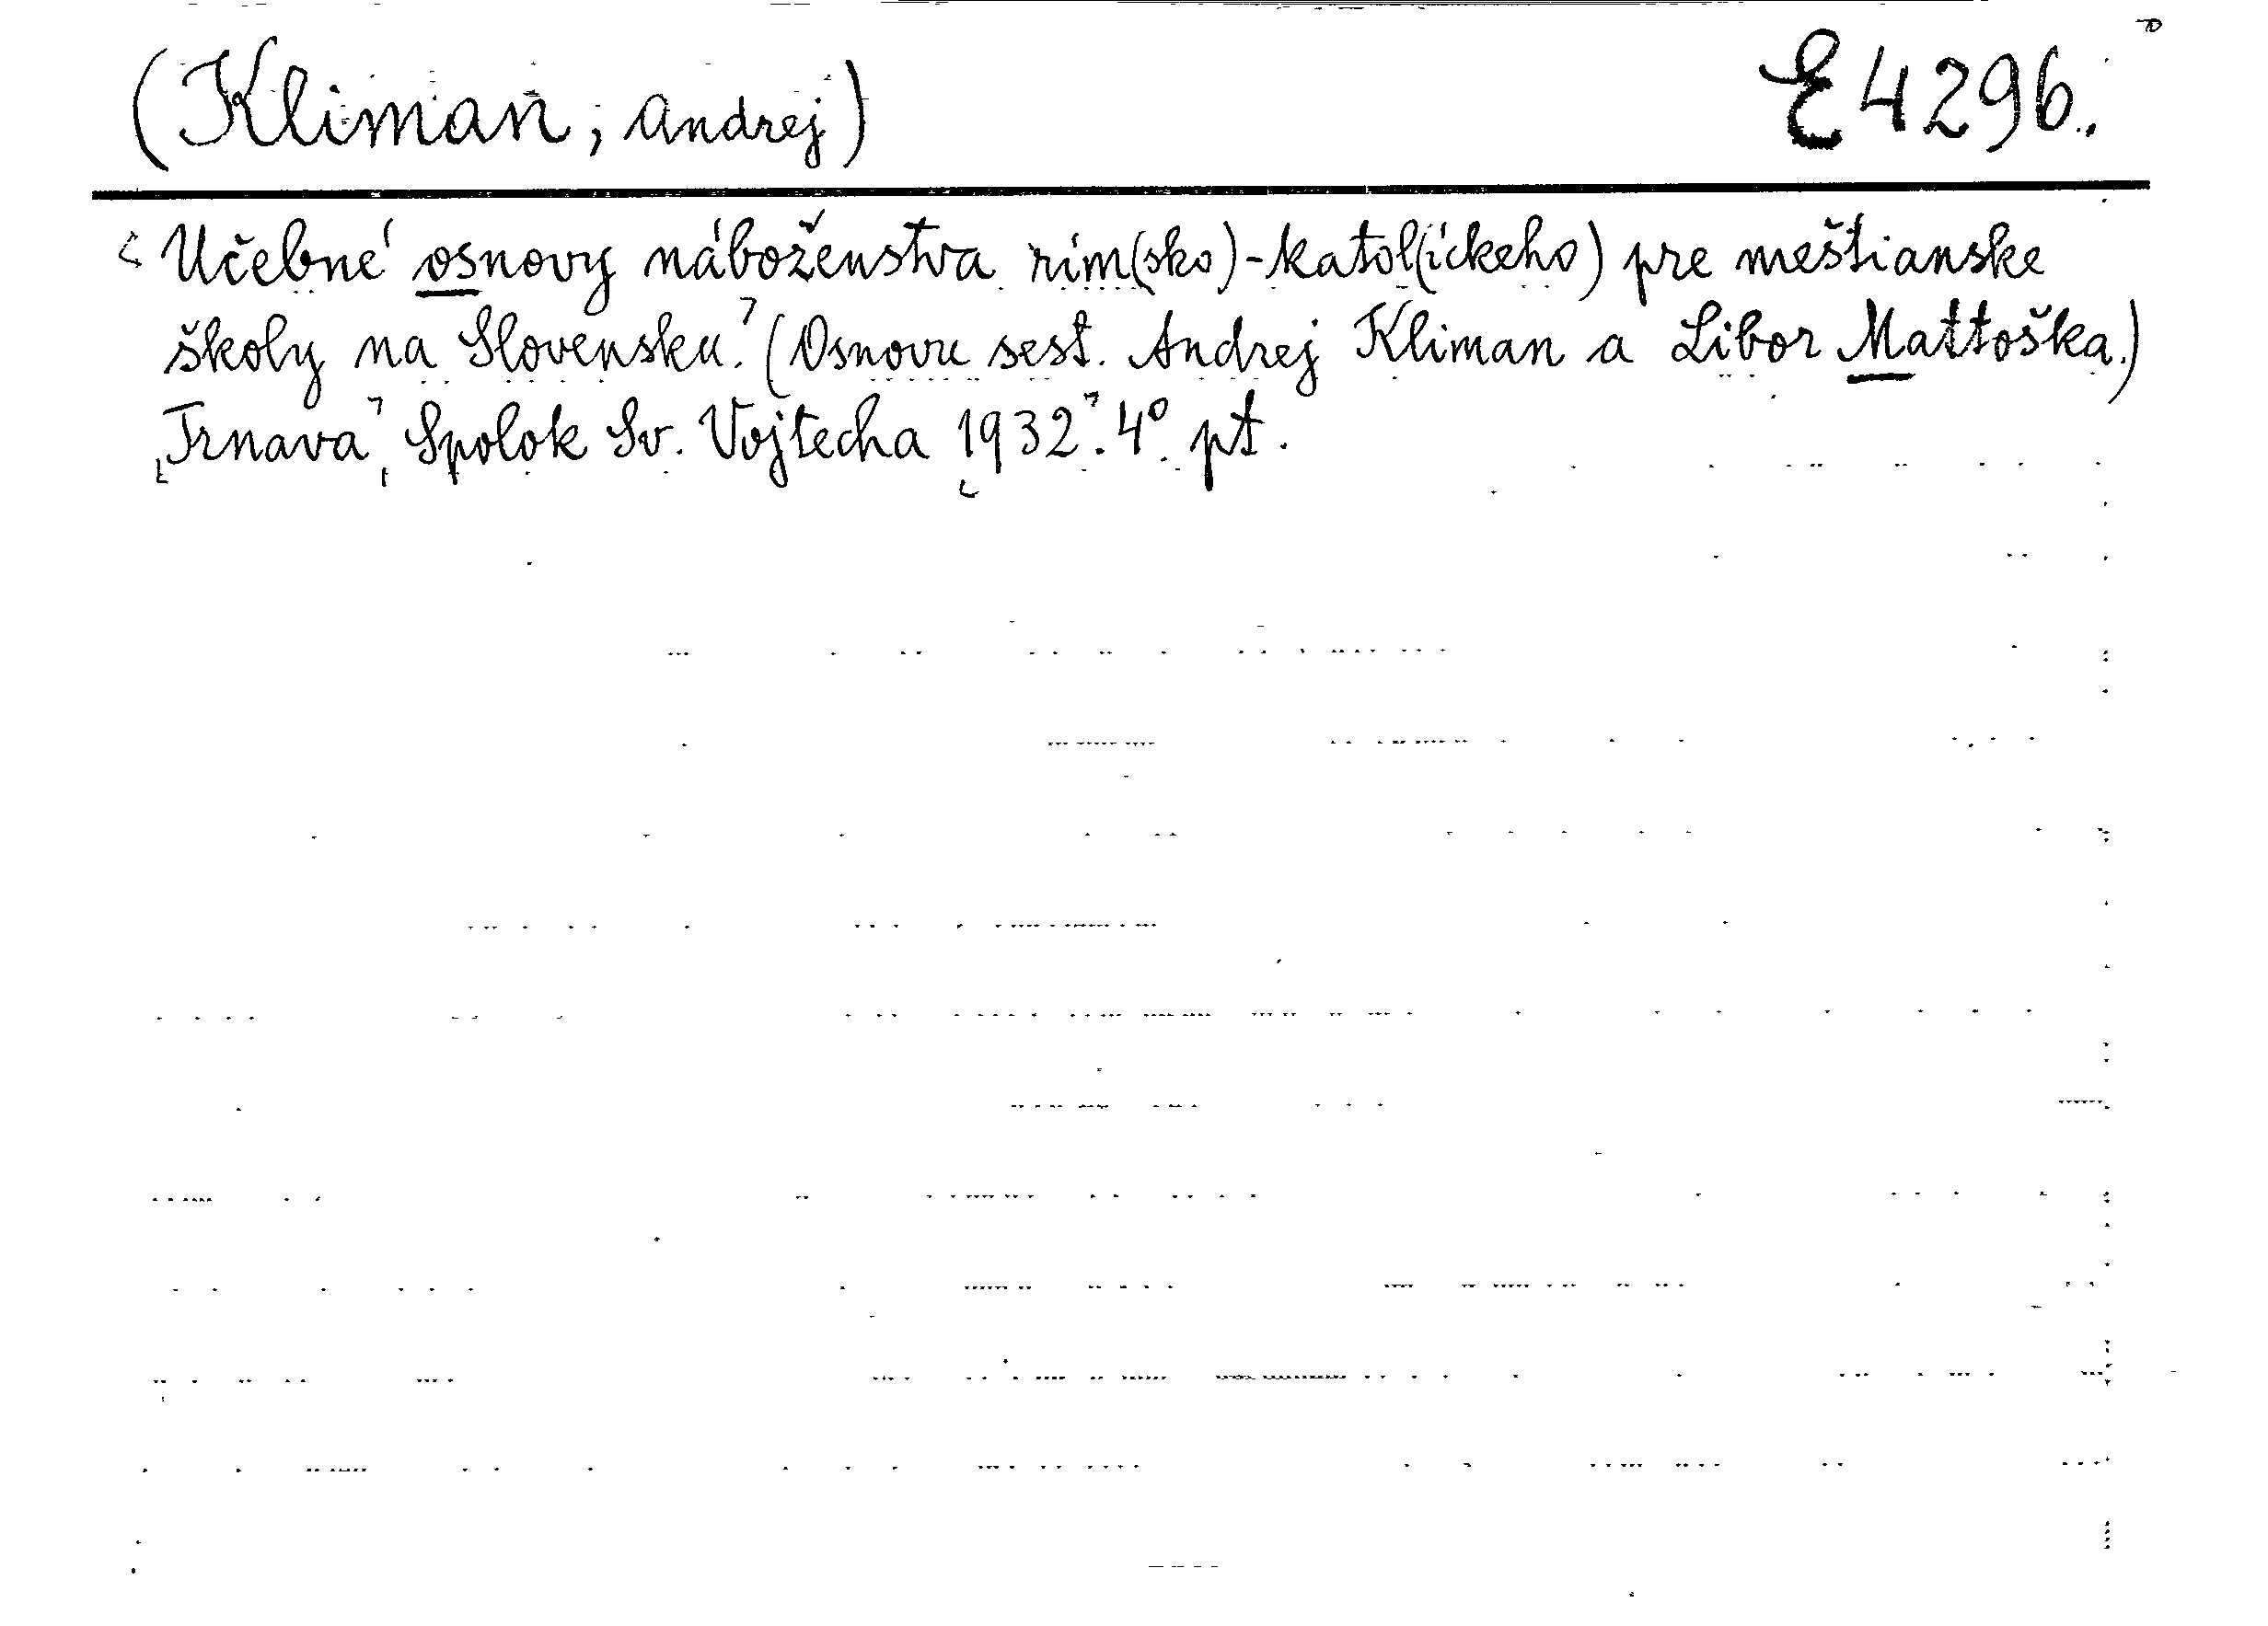 (Kliman, Andrej) E 4296.
Učebné osnovy náboženstva rím(sko)-katol(íckeho) pre meštianske
školy na Slovensku. (Osnovu sest. Andrej Kliman a Libor Mattoška.)
Trnava, Spolok Sv. Vojtecha 1932. 4° pt.